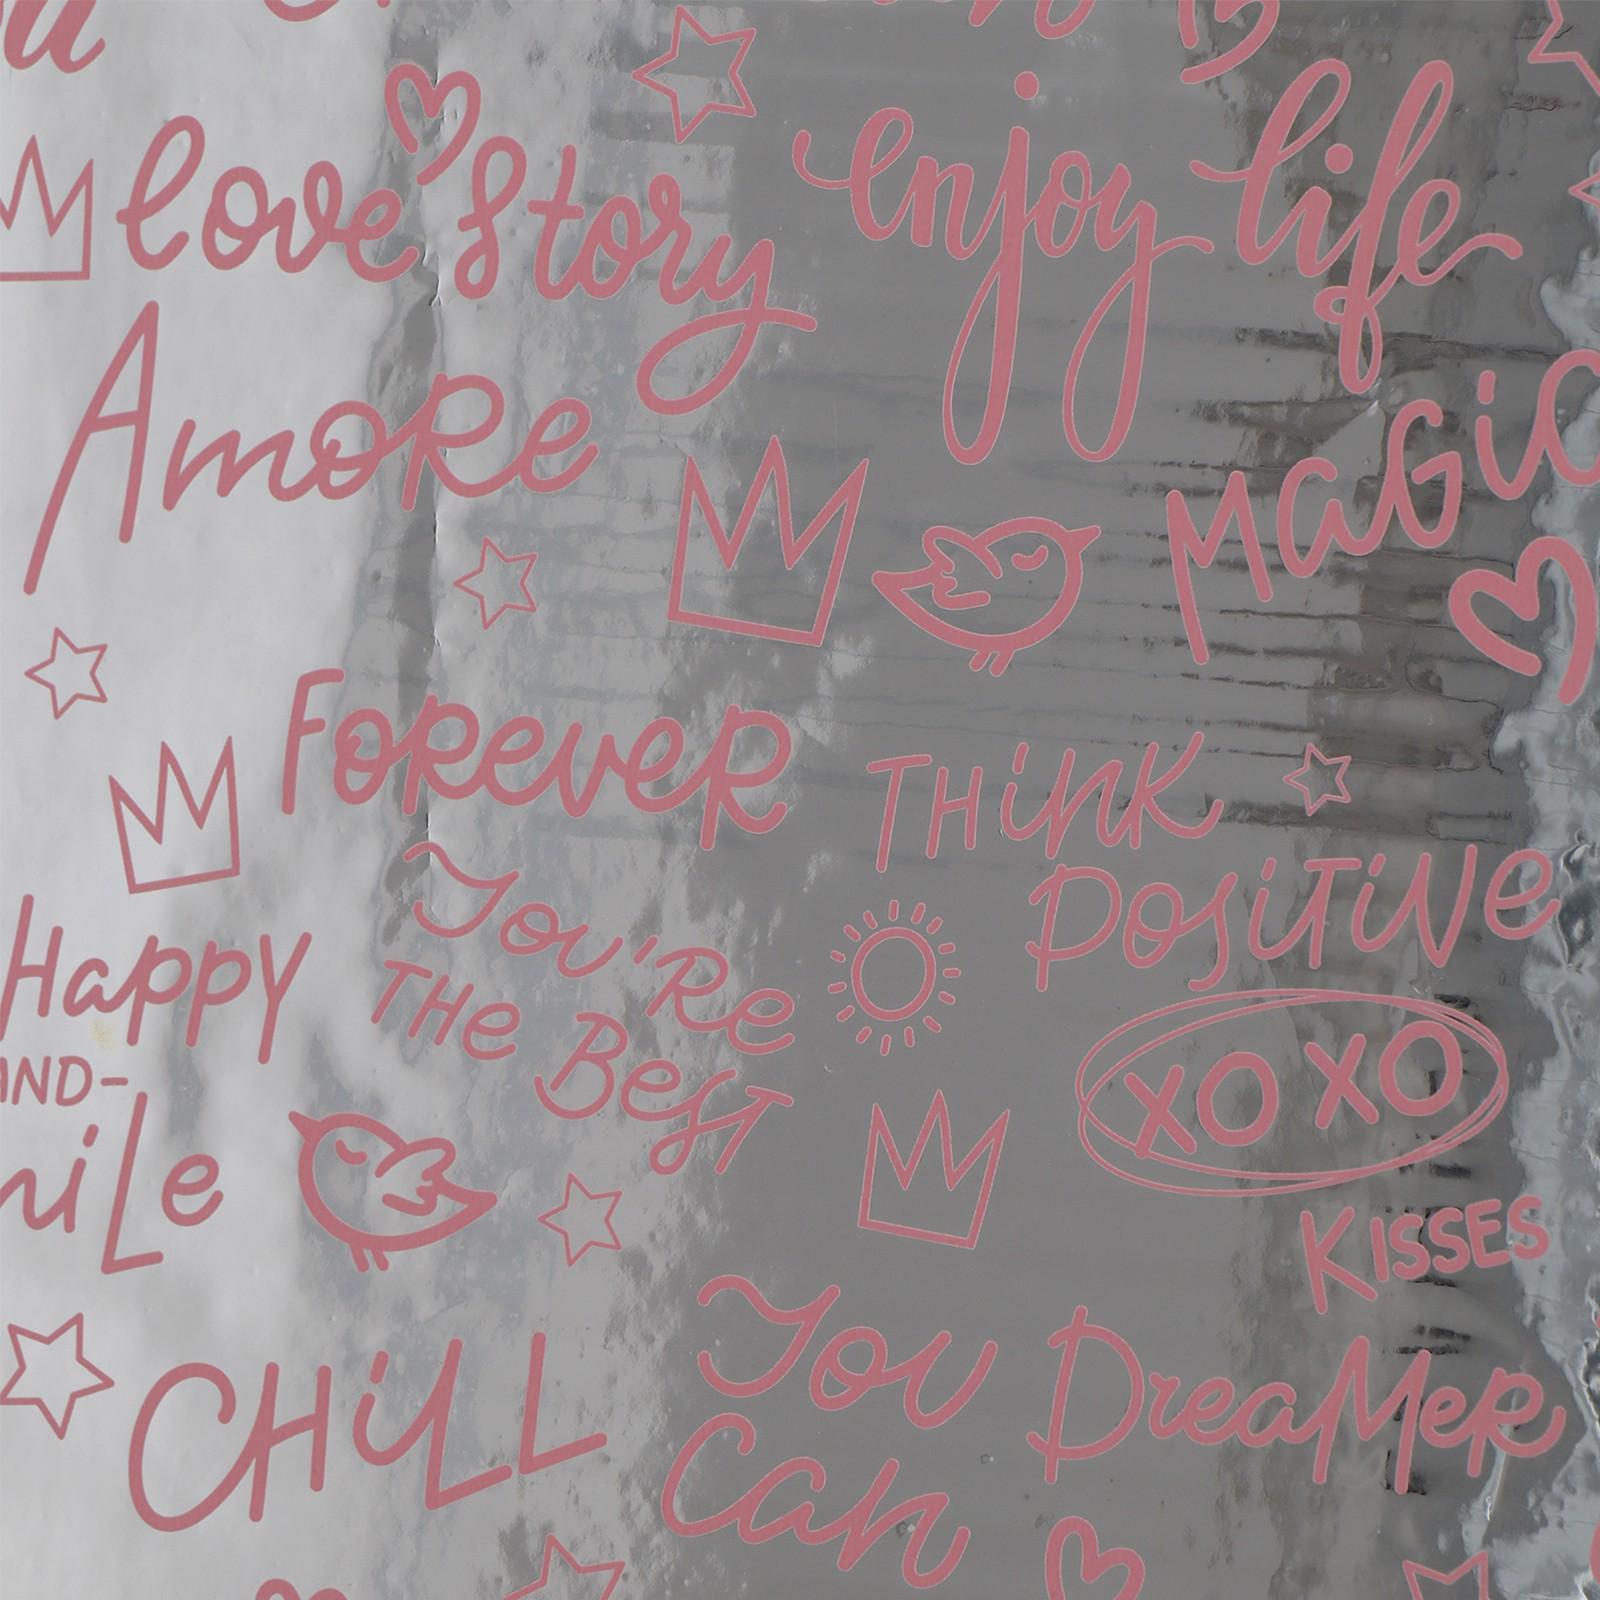 love story
enjoy life
Amore
Magic
Forever
Think
Positive
You're
the Best
Happy
AND-
XO XO
Kisses
Chill
You
Can
Dreamer